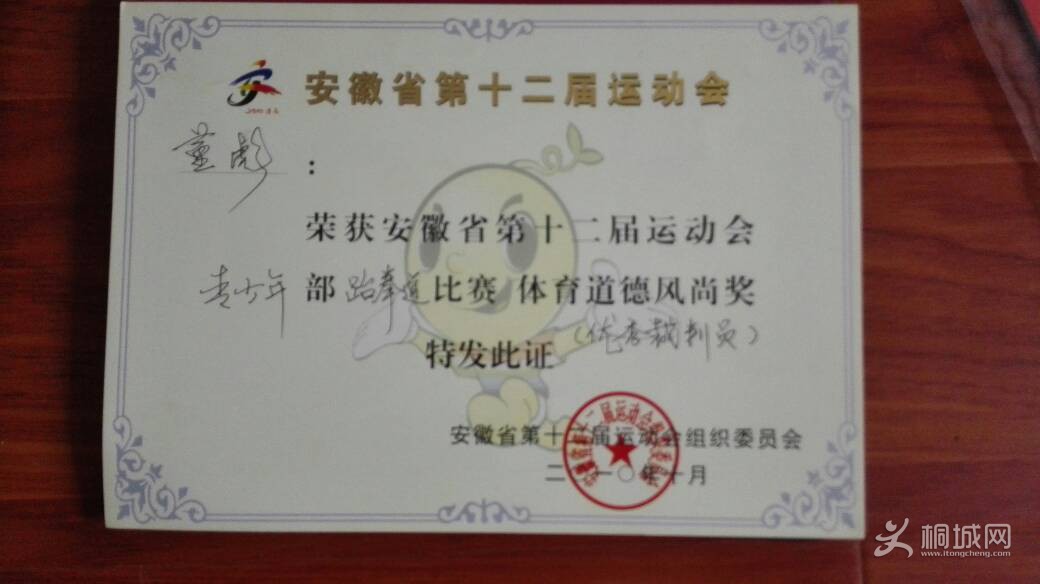 安徽省第十二届运动会
董彪：
荣获安徽省第十二届运动会
青少年部跆拳道比赛 体育道德风尚奖
（优秀裁判员）
特发此证
安徽省第十二届运动会组织委员会
二〇一〇年十月
桐城网
www.itongcheng.com